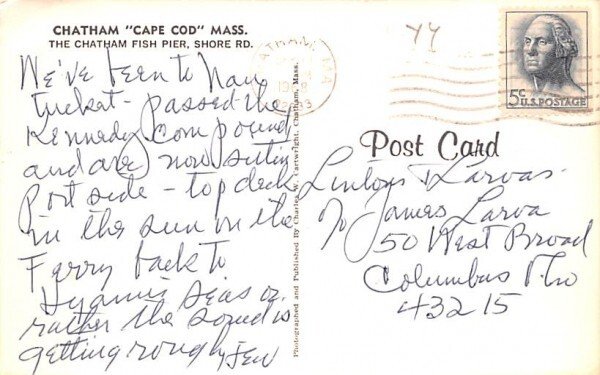 CHATHAM "CAPE COD" MASS.
THE CHATHAM FISH PIER, SHORE RD.
We've been to Nan
tucket - passed the
Kennedy Compound
and are now sitting
Port side - top deck
in the sun on the
Ferry back to
Hyannis seas or
rather the sound is
getting rough
Photographed and Published by Charles W. Cartwright, Chatham, Mass.
44
5¢ U.S. POSTAGE
Post Card
Lintons & Larvas
% James Larva
50 West Broad
Columbus Ohio
43215